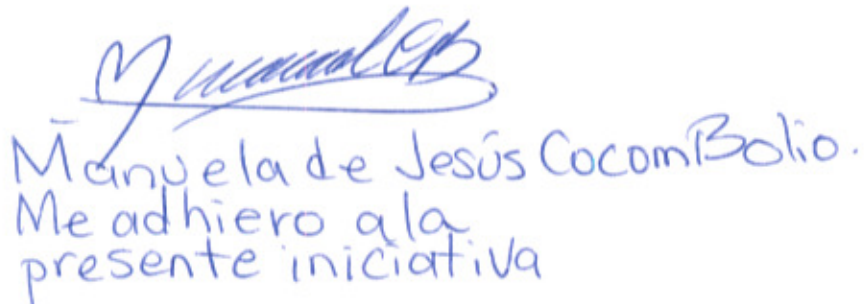 Manuela de Jesús Cocom Bolio.
Me adhiero a la
presente iniciativa